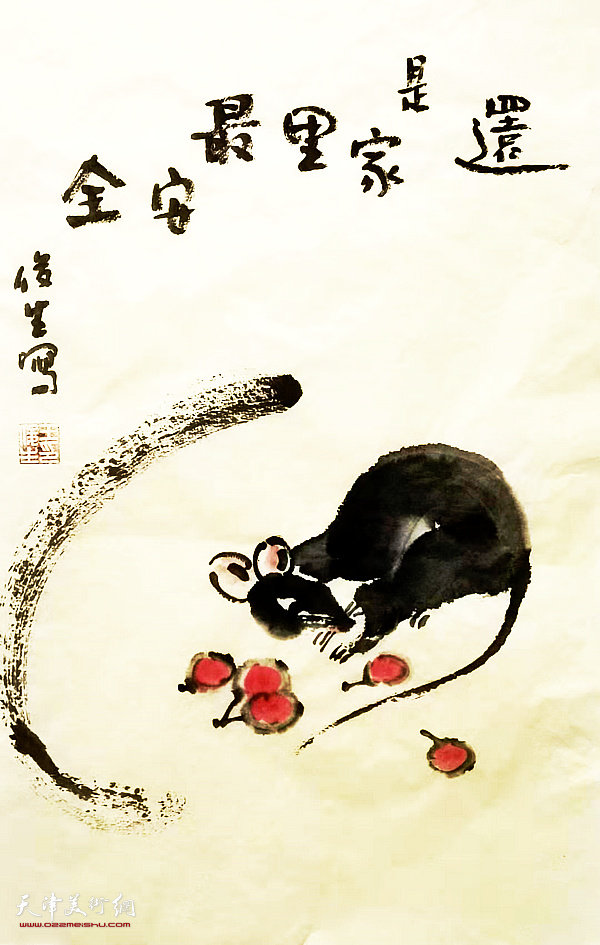 還是家里最安全
俊生寫
天津美術網
www.022meishu.com